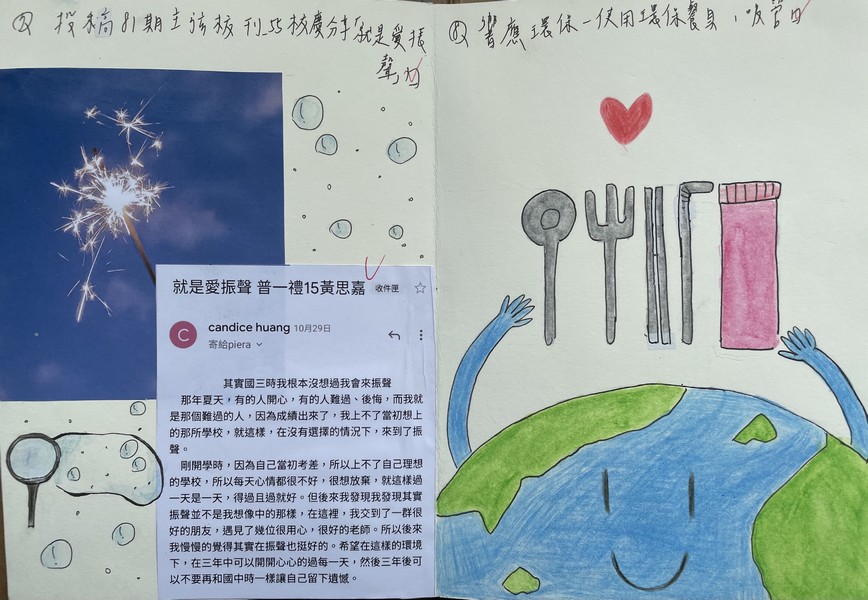 ⑦ 投稿81期主弦校刊_55校慶分享「就是愛振
聲」
就是愛振聲 普一禮15黃思嘉 收件匣
C
candice huang 10月29日
寄給piera
其實國三時我根本沒想過我會來振聲
那年夏天，有的人開心，有的人難過、後悔，而我就
是那個難過的人，因為成績出來了，我上不了當初想上
的那所學校，就這樣，在沒有選擇的情況下，來到了振
聲。
剛開學時，因為自己當初考差，所以上不了自己理想
的學校，所以每天心情都很不好，很想放棄，就這樣過
一天是一天，得過且過就好。但後來我發現我發現其實
振聲並不是我想像中的那樣，在這裡，我交到了一群很
好的朋友，遇見了幾位很用心，很好的老師。所以後來
我慢慢的覺得其實在振聲也挺好的。希望在這樣的環境
下，在三年中可以開開心心的過每一天，然後三年後可
以不要再和國中時一樣讓自己留下遺憾。
⑧ 響應環保—使用環保餐具、吸管